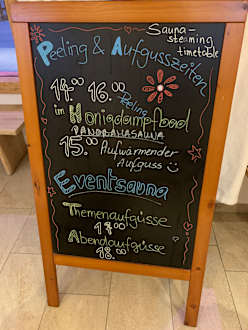 Sauna-
steaming
timetable
Peeling & Aufgusszeiten
14.00 16.00 Peeling
im Honigdampfbad
PANORAMASAUNA
15.00 Aufwärmender
Aufguss
Eventsauna
Themenaufgüsse
17.00
Abendaufgüsse
18.00